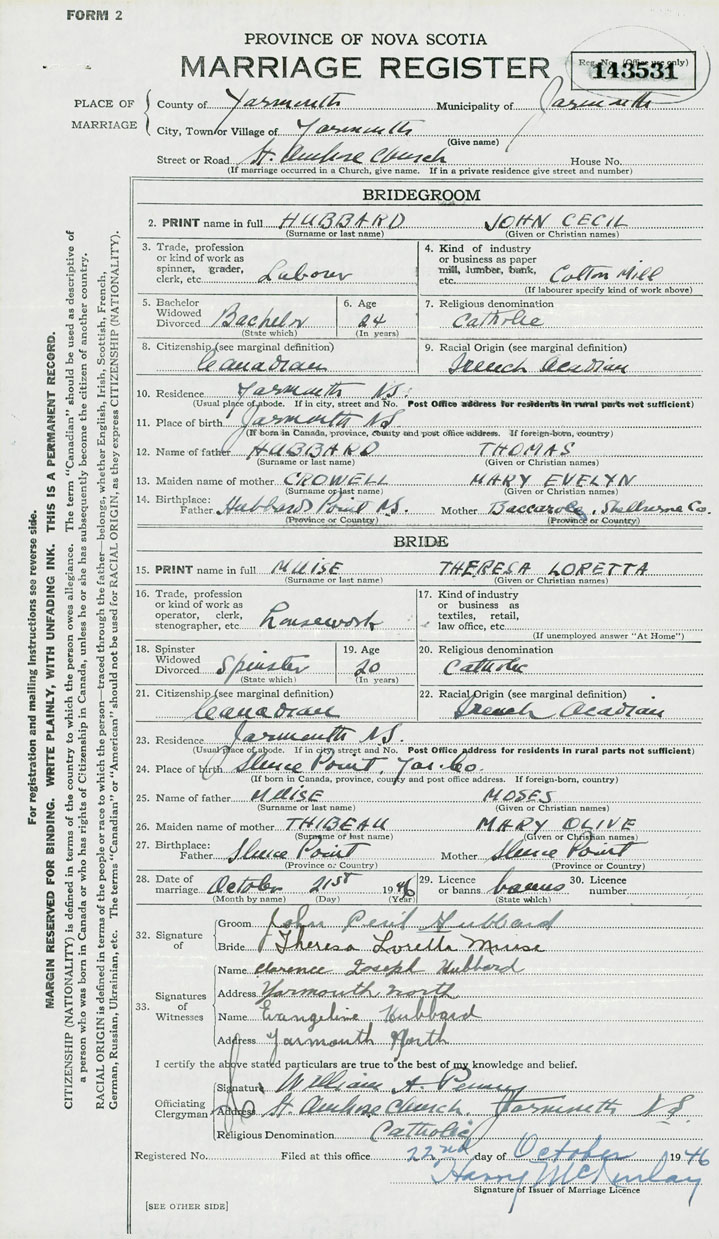 FORM 2
PROVINCE OF NOVA SCOTIA
MARRIAGE REGISTER
Reg. No. (Office use only)
143531
PLACE OF MARRIAGE
County of Yarmouth Municipality of Yarmouth
City, Town or Village of Yarmouth
(Give name)
Street or Road St. Ambrose Church House No.
(If marriage occurred in a Church, give name. If in a private residence give street and number)
BRIDEGROOM
2. PRINT name in full HUBBARD JOHN CECIL
(Surname or last name) (Given or Christian names)
3. Trade, profession or kind of work as spinner, grader, clerk, etc. Labour
4. Kind of industry or business as paper mill, lumber, bank, etc. Cotton Mill
(If labourer specify kind of work above)
5. Bachelor Widowed Divorced Bachelor
(State which)
6. Age 24
(In years)
7. Religious denomination
Catholic
8. Citizenship (see marginal definition)
Canadian
9. Racial Origin (see marginal definition)
French Acadian
10. Residence Yarmouth N.S.
(Usual place of abode. If in city, street and No. Post Office address for residents in rural parts not sufficient)
11. Place of birth Yarmouth N.S.
(If born in Canada, province, county and post office address. If foreign-born, country)
12. Name of father HUBBARD THOMAS
(Surname or last name) (Given or Christian names)
13. Maiden name of mother CROWELL MARY EVELYN
(Surname or last name) (Given or Christian names)
14. Birthplace: Father Hubbards Point N.S. Mother Shelburne Co.
(Province or Country) (Province or Country)
BRIDE
15. PRINT name in full MUISE THERESA LORETTA
(Surname or last name) (Given or Christian names)
16. Trade, profession or kind of work as operator, clerk, stenographer, etc. Housework
17. Kind of industry or business as textiles, retail, law office, etc.
(If unemployed answer "At Home")
18. Spinster Widowed Divorced Spinster
(State which)
19. Age 20
(In years)
20. Religious denomination
Catholic
21. Citizenship (see marginal definition)
Canadian
22. Racial Origin (see marginal definition)
French Acadian
23. Residence Yarmouth N.S.
(Usual place of abode. If in city street and No. Post Office address for residents in rural parts not sufficient)
24. Place of birth Sluice Point, Yar. Co.
(If born in Canada, province, county and post office address. If foreign-born, country)
25. Name of father MUISE MOSES
(Surname or last name) (Given or Christian names)
26. Maiden name of mother THIBEAU MARY OLIVE
(Surname or last name) (Given or Christian names)
27. Birthplace: Father Sluice Point Mother Sluice Point
(Province or Country) (Province or Country)
28. Date of marriage October 21st 1946
(Month by name) (Day) (Year)
29. Licence or banns banns
(State which)
30. Licence number
32. Signature of
Groom John Cecil Hubbard
Bride Theresa Loretta Muise
33. Signatures of Witnesses
Name Clarence Joseph Hubbard
Address Yarmouth North
Name Evangeline Hubbard
Address Yarmouth North
I certify the above stated particulars are true to the best of my knowledge and belief.
Officiating Clergyman
Signature William A. Penny
Address St. Ambrose Church, Yarmouth N.S.
Religious Denomination Catholic
Registered No. Filed at this office 22nd day of October 1946
Signature of Issuer of Marriage Licence
[SEE OTHER SIDE]
For registration and mailing instructions see reverse side.
MARGIN RESERVED FOR BINDING. WRITE PLAINLY, WITH UNFADING INK. THIS IS A PERMANENT RECORD.
CITIZENSHIP (NATIONALITY) is defined in terms of the country to which the person owes allegiance. The term "Canadian" should be used as descriptive of
a person who was born in Canada or who has rights of Citizenship in Canada, unless he or she has subsequently become the citizen of another country.
RACIAL ORIGIN is defined in terms of the people or race to which the person—traced through the father—belongs, whether English, Irish, Scottish, French,
German, Russian, Ukrainian, etc. The terms "Canadian" or "American" should not be used for RACIAL ORIGIN, as they express CITIZENSHIP (NATIONALITY).